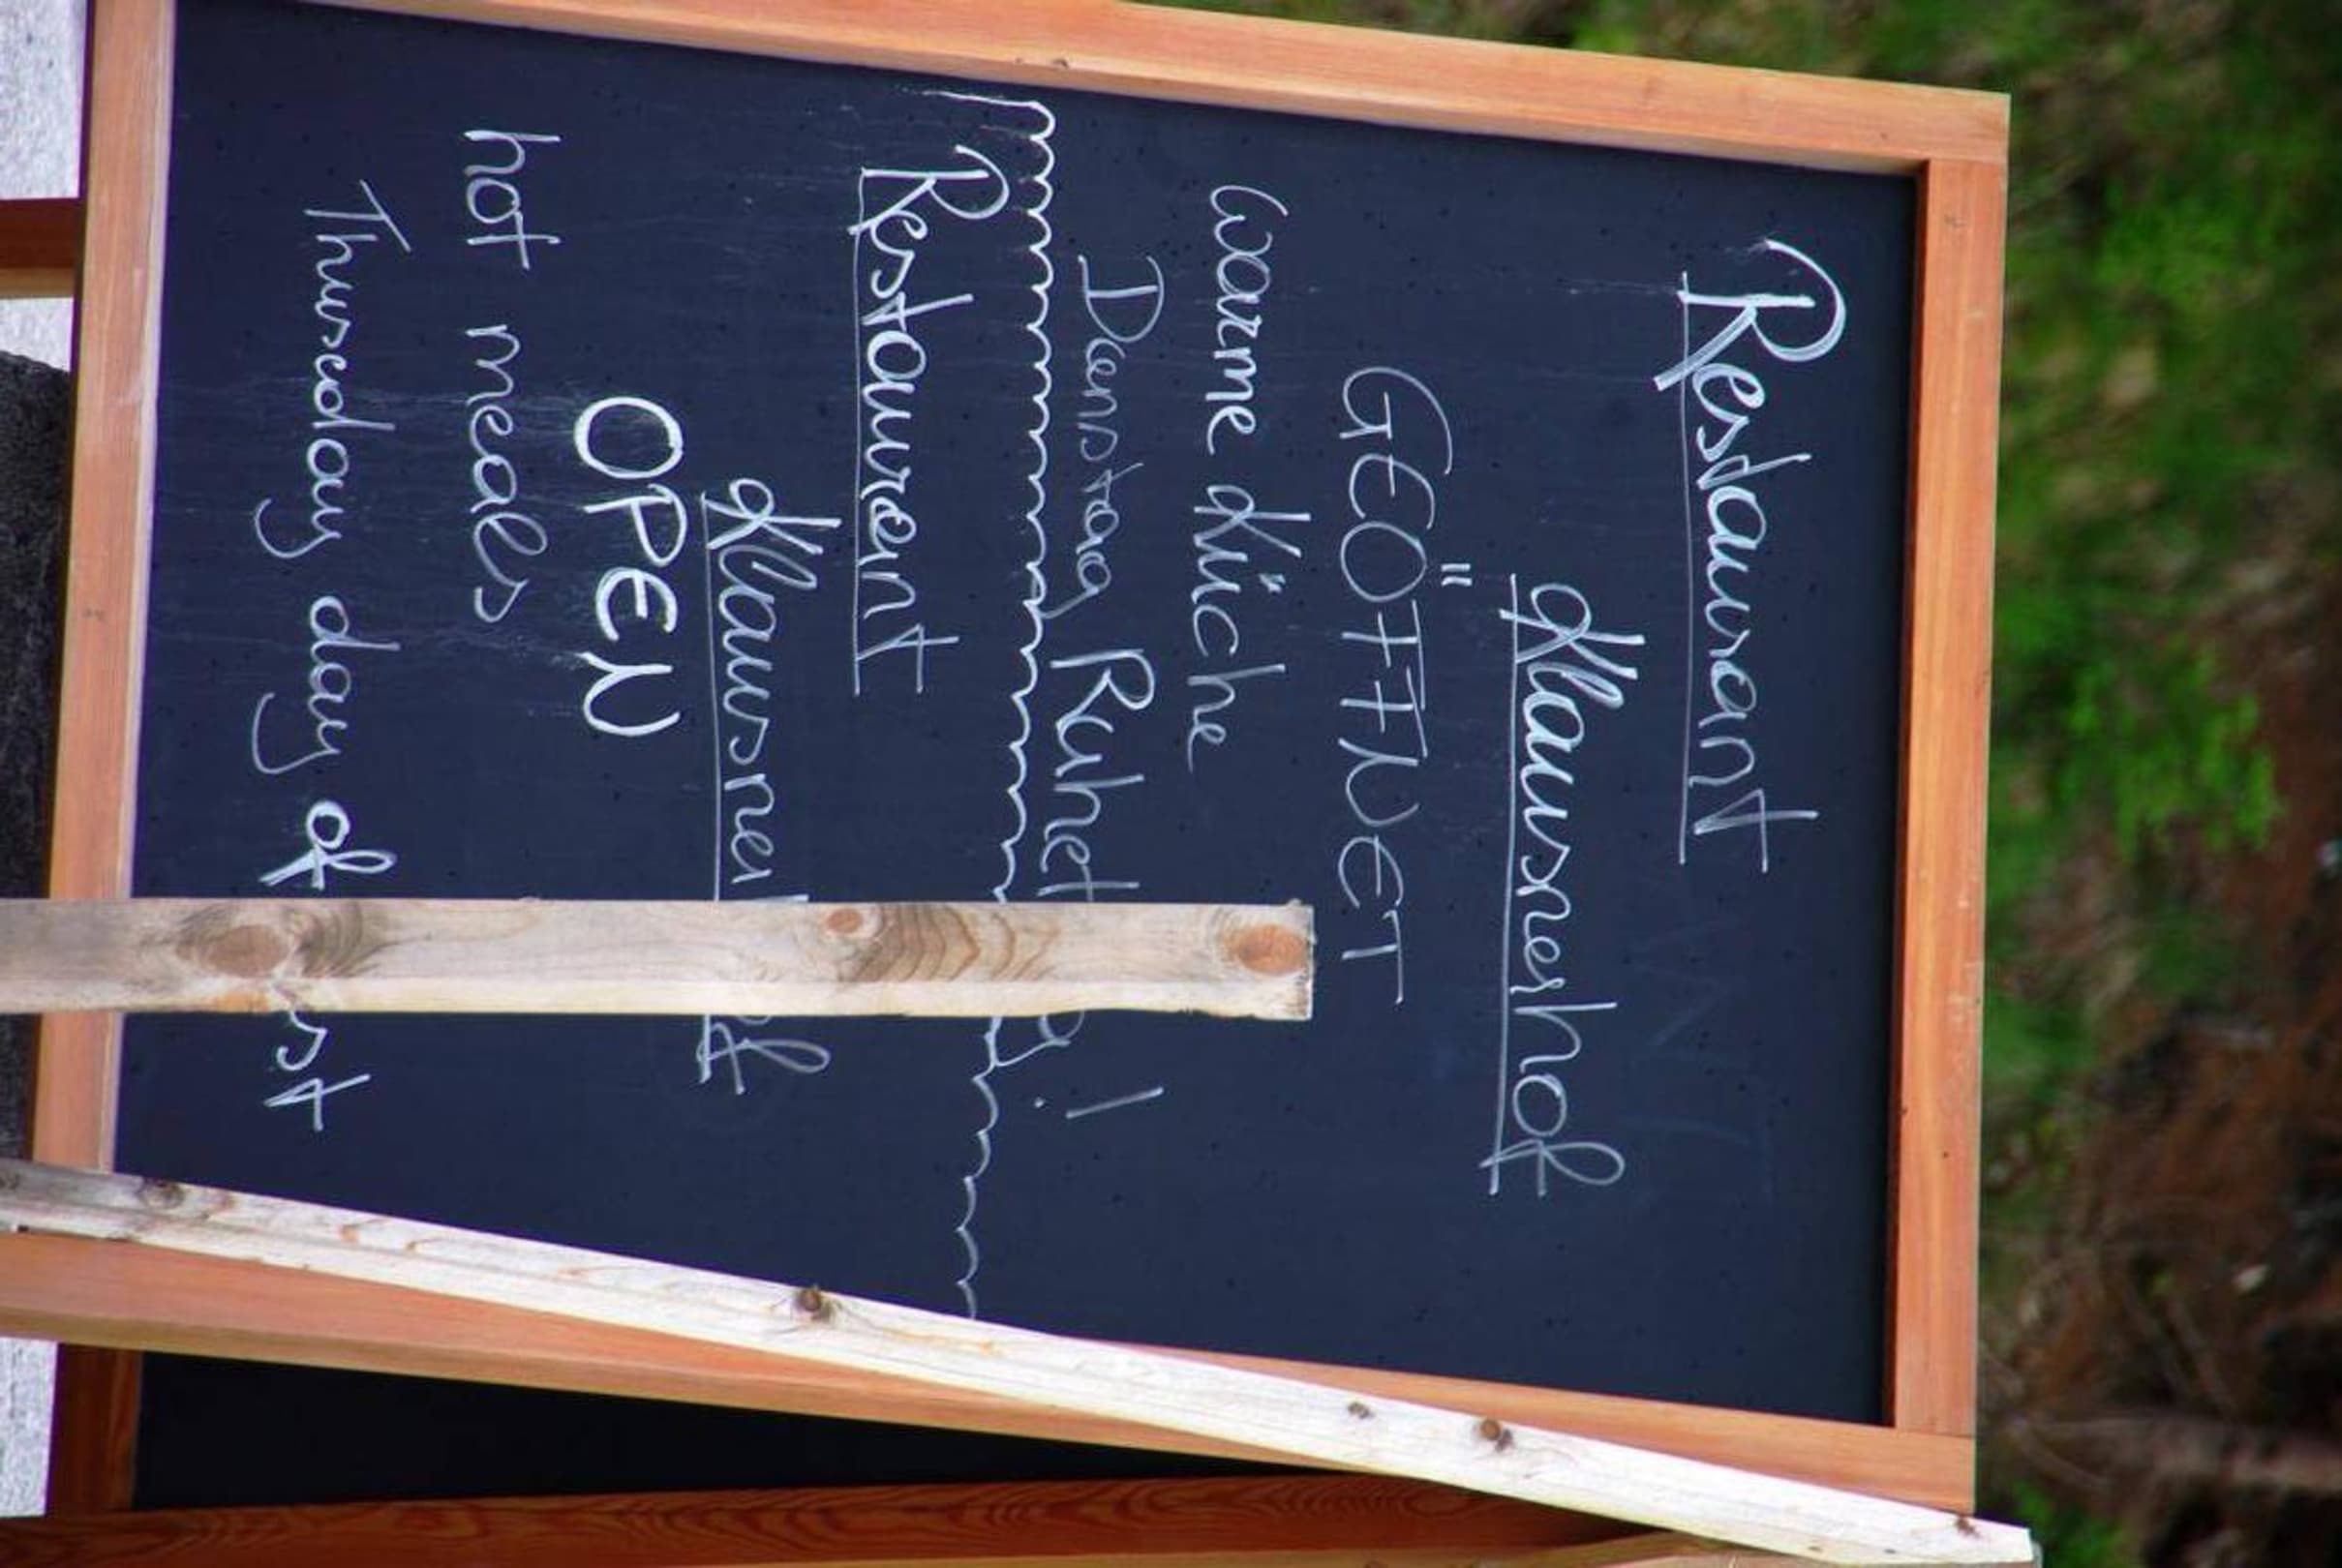 Restaurant
Klausnerhof
GEÖFFNET
warme Küche
Dienstag Ruhetag!
Restaurant
Klausnerhof
OPEN
hot meals
Thuseday day of rest